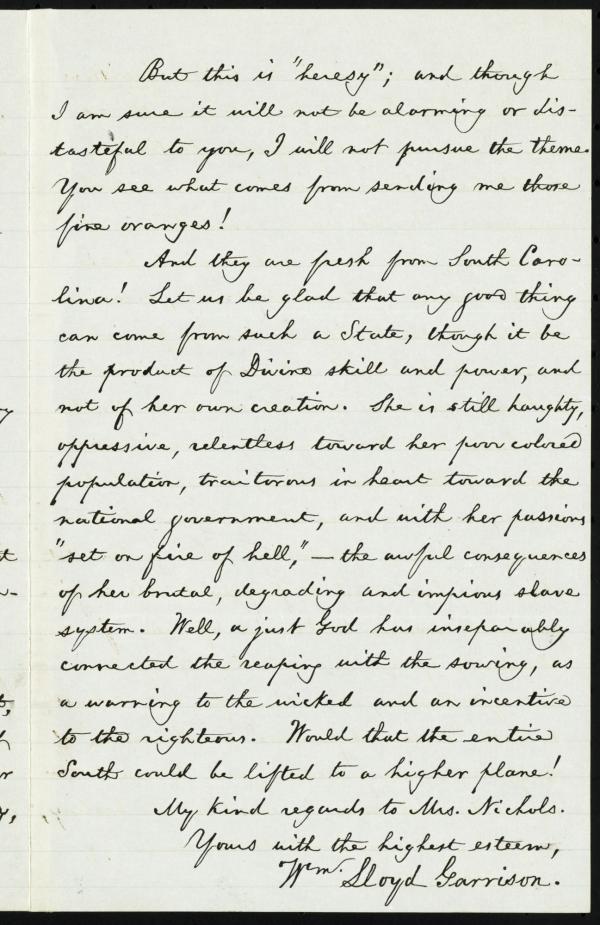 But this is "heresy"; and though
I am sure it will not be alarming or dis-
tasteful to you, I will not pursue the theme.
You see what comes from sending me those
fine oranges!
And they are fresh from South Caro-
lina! Let us be glad that any good thing
can come from such a State, though it be
the product of Divine skill and power, and
not of her own creation. She is still haughty,
oppressive, relentless toward her poor colored
population, traitorous in heart toward the
national government, and with her passions
"set on fire of hell," — the awful consequences
of her brutal, degrading and impious slave
system. Well, a just God has inseparably
connected the reaping with the sowing, as
a warning to the wicked and an incentive
to the righteous. Would that the entire
South could be lifted to a higher plane!
My kind regards to Mrs. Nichols.
Yours with the highest esteem,
Wm. Lloyd Garrison.